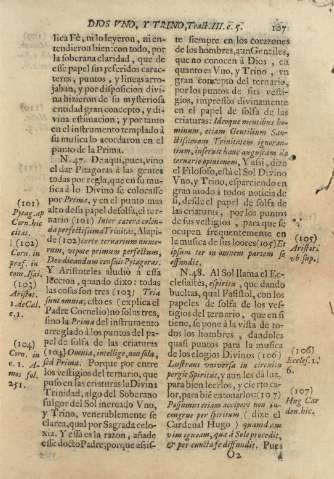 DIOS VNO, Y TRINO, Tract. III. c. 5. 107
lica Fè, ni lo leyeron, ni en-
tendieron bien: con todo, por
la soberana claridad, que de
esse papel sus referidos carac-
teres, puntos, y lineas arro-
jaban, y por disposicion divi-
na hizieron de su mysteriosa
entidad gran concepto, y di-
vina estimacion; y por tanto
en el instrumento templado à
su musica lo acordaron en el
punto de la Prima.
N. 47. De aqui, pues, vino
el dar Pitagoras à las gentes
todas por regla, que en su mu-
sica à lo Divino se colocasse
por Prima, y en el punto mas
alto de essa papel de solfa, el ter-
nario (101) Inter cætera colen-
da perfectissima Trinitas. Alapi-
de (102) certe ternarium nume-
rum, utpote primum perfectum,
Deo dicandum censuit Pytagoras.
Y Aristoteles aludiò à essa
leccion, quando dixo: todas
las cosas son tres (103) Tria
sunt omnia; esto es (explica el
Padre Cornelio) no solas tres,
sino la Prima del instrumento
arreglado à los puntos del pa-
pel de solfa de las criaturas
(104) Omnia, intellige, non sola,
sed Prima. Porque por entre
los vestigios del ternario, que
puso en las criaturas la Divina
Trinidad, algo del Soberano
fulgor del Sol increado Vno,
y Trino, venerablemente se
clarea, qual por Sagrada celo-
xia. Y essa es la razon, añade
esse docto Padre, porque assis-
(101)
Pytag. ap.
Corn. hic
citat.
(102)
Corn. in
præf. in
com. Isai.
(103)
Aristot.
1. de Cæl.
c. 1.
(104)
Corn. in
c. 1. A-
mos fol.
251.
te siempre en los corazones
de los hombres, aun Gentiles,
que no conocen à Dios, en
quanto es Vno, y Trino, un
gran concepto del ternario,
por los puntos de sus vesti-
gios, impressos divinamente
en el papel de solfa de las
criaturas: Ideoque mentibus ho-
minum, etiam Gentilium San-
ctissimam Trinitatem ignoran-
tium, inseruit hanc augustam de
ternario opinionem. Y assi, dize
el Filosofo, està el Sol Divino
Vno, y Trino, esparciendo en
gran modo à todos noticia de
sì, desde el papel de solfa de
las criaturas, por los puntos
de sus vestigios, para que se
ocupen frequentemente en
la musica de sus loores (105) Et
ipsum ter in omnem partem se
effundit.
N. 48. Al Sol llama el Ec-
clesiastès, espiritu, que dando
bueltas, qual Psalista, con los
papeles de solfa de los ves-
tigios del ternario, que en sì
tiene, se pone à la vista de to-
dos los hombres, dandoles
quasi puntos para la musica
de los elogios Divinos (106)
Lustrans universa in circuitu
pergit Spiritus, y aun les dà luz
para bien leerlos, y cierto ca-
lor, para biê entonarlos: (107)
Possumus etiam accipere non in-
congrue per spiritum (dize el
Cardenal Hugo) quandam
vim igneam, quæ à Sole procedit,
& per cuncta se diffundit. Pues
(105)
Aristot.
ub. sup.
(106)
Eccles. 1.
6.
(107)
Hug. Car
den. hic.
O2